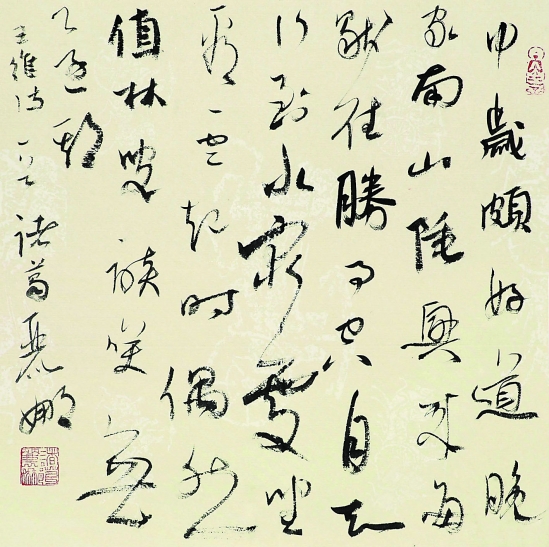 中歲頗好道晚
家南山陲興來每
獨往勝事空自知
行到水窮處坐
看雲起時偶然
值林叟談笑無
還期
王維詩一首 諸葛麗娜